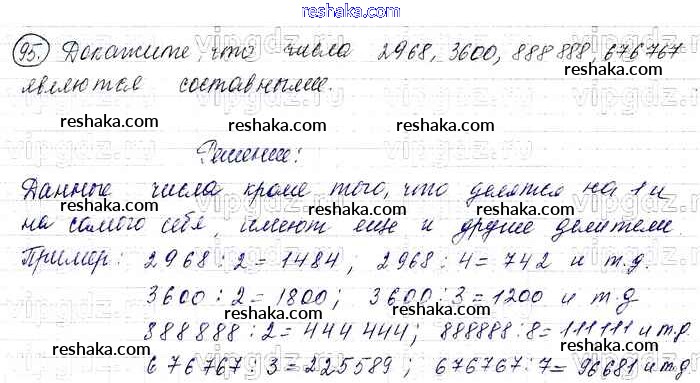 reshaka.com
95. Докажите, что числа 2968, 3600, 888888, 676767
являются составными.
reshaka.com reshaka.com reshaka.com
Решение:
Данные числа кроме того, что делятся на 1 и
на самого себя, имеют еще и другие делители.
reshaka.com reshaka.com reshaka.com
Пример: 2968:2=1484; 2968:4=742 и т.д.
3600:2=1800; 3600:3=1200 и т.д
reshaka.com reshaka.com reshaka.com
888888:2=444444; 888888:8=111111 и т.д.
676767:3=225589; 676767:7=96681 и т.д.
reshaka.com reshaka.com reshaka.com